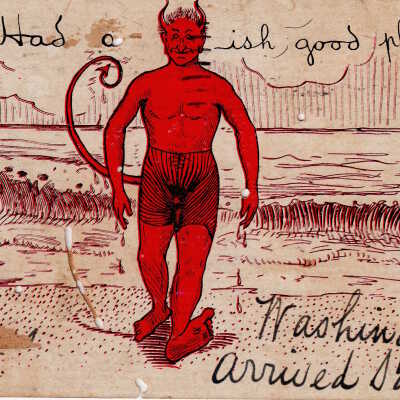 Had a ish good
Washin
arrived